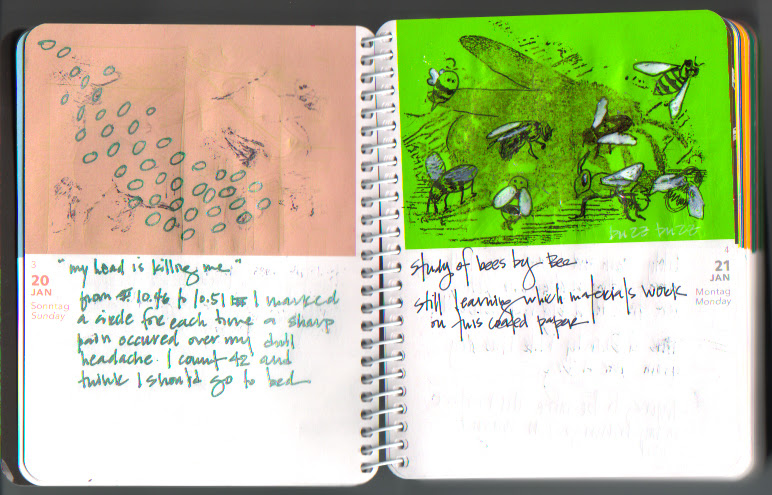 3
20
JAN
Sonntag
Sunday
"my head is killing me"
from 10.46 to 10.51 I marked
a circle for each time a sharp
pain occured over my dull
headache. I count 42 and
think I should go to bed
buzz buzz
4
21
JAN
Montag
Monday
study of bees by Bee
still learning which materials work
on this coated paper